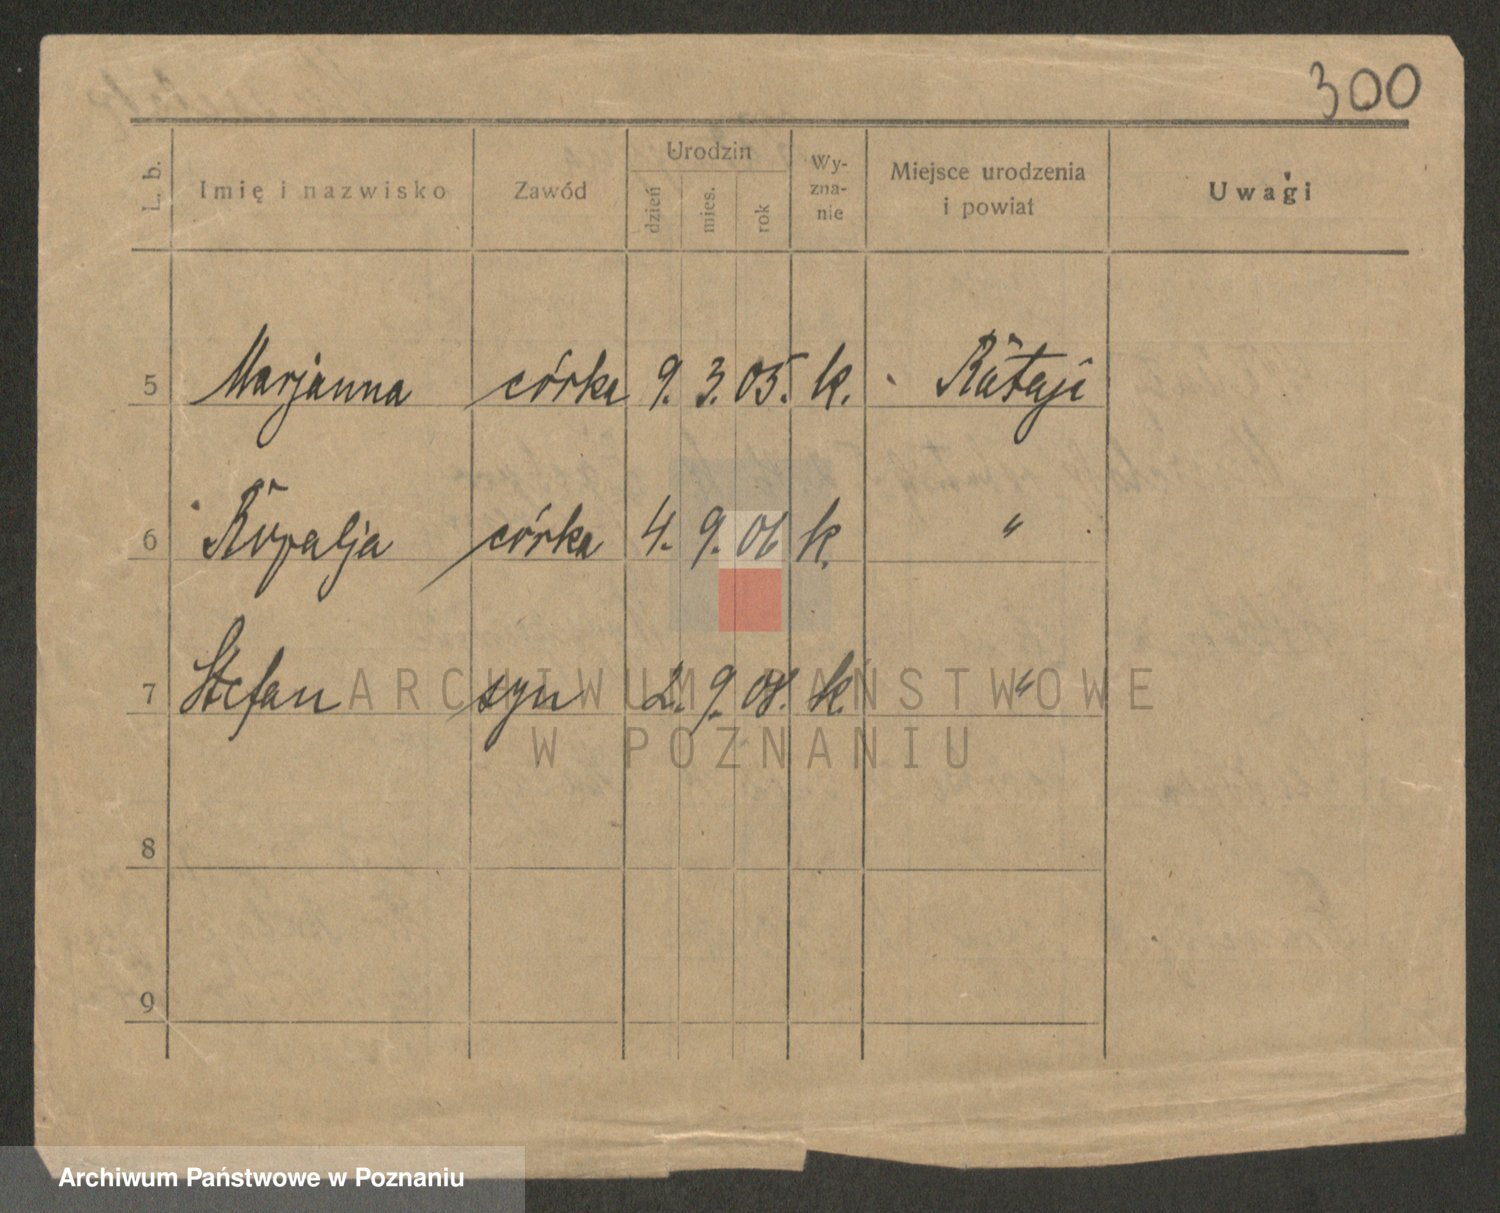 300
L. b. Imię i nazwisko Zawód Urodzin dzień mies. rok Wy-zna-nie Miejsce urodzenia i powiat Uwagi
5 Marjanna córka 9. 3. 05. k. Rataje
6 Rozalja córka 4. 9. 06 k. "
7 Stefan syn 2. 9. 08. k. "
8
9
ARCHIWUM PAŃSTWOWE
W POZNANIU
Archiwum Państwowe w Poznaniu